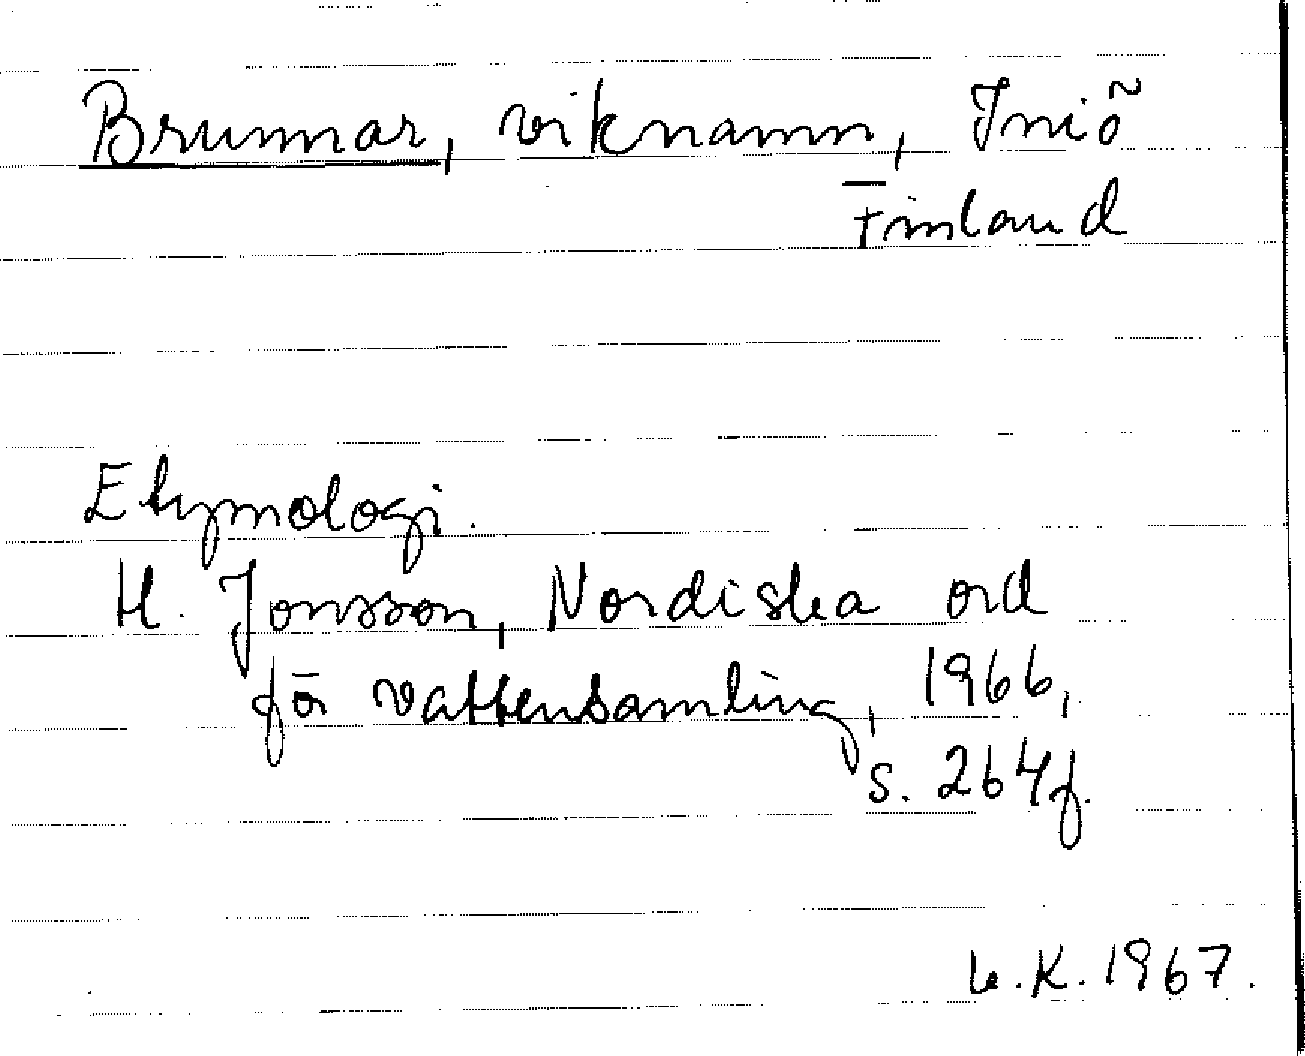 Brunnar, viknamn, Iniö
Finland
Etymologi.
H. Jonsson, Nordiska ord
för vattensamling, 1966,
s. 264f.
K. 1967.